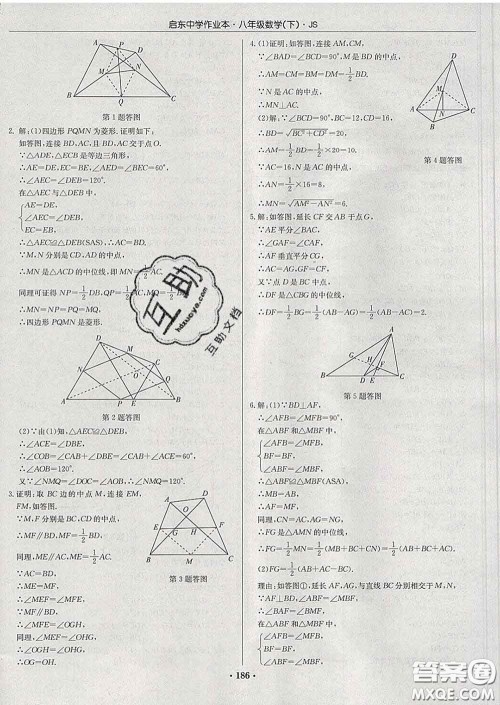 启东中学作业本·八年级数学(下)·JS
第1题答图
2.解:(1)四边形PQMN为菱形.证明如下:
如答图,连接BD、AC,且BD、AC交于点O.
∵△ADE、△ECB是等边三角形,
∴AE=DE,EC=BE,∠AED=∠BEC=60°.
∴∠AEC=∠DEB=120°.
在△AEC与△DEB中,
AE=DE,
∠AEC=∠DEB,
EC=EB,
∴△AEC≌△DEB(SAS).∴AC=BD.
∵M、N分别是CD、AD的中点,
∴MN是△ACD的中位线,即MN=1/2AC.
同理可证得NP=1/2DB,QP=1/2AC,MQ=
∴MN=NP=PQ=MQ.
∴四边形PQMN是菱形.
第2题答图
(2)∵由(1)知,△AEC≌△DEB,
∴∠ACE=∠DBE.
∴∠COB+∠CBO+∠DBE=120°.
∴∠COB=60°.
又∵∠NMC=∠COB,∴∠NMC=
3.证明:取BC边的中点M,连接EM,
FM,如答图.
∵M、F分别是BC、CD的中点,
∴MF∥BD,MF=1/2BD.
同理,ME∥AC,ME=1/2AC.
∵AC=BD,
∴ME=MF.
∴∠MEF=∠MFE.
∵MF∥BD,
∴∠MFE=∠OGH.
同理,∠MEF=∠OHG,
∴∠OGH=∠OHG,
∴OG=OH.
第3题答图
4.(1)证明:如答图,连接AM、CM,
∵∠BAD=∠BCD=90°,M是BD的中点,
∴AM=CM=BM=DM=1/2BD.
∵N是AC的中点,
∴MN⊥AC.
(2)解:∵∠BCD=90°,BC=12,CD=16,
∴BD=√BC²+CD²=20.
∴AM=1/2BD=1/2×20=10.
∵AC=16,N是AC的中点,
∴AN=1/2×16=8,
∴MN=√AM²-AN²=6.
第4题答图
5.解:如答图,延长CF交AB于点G.
∵AE平分∠BAC,
∴∠GAF=∠CAF.
∵AF垂直平分CG,
∴AC=AG.
又∵点D是BC中点,
∴DF是△CBG的中位线,
∴DF=1/2BG=1/2(AB-AG)=1/2(AB-AC)=
第5题答图
6.解:(1)∵BD⊥AF,
∴∠AFB=∠MFB=90°.
在△ABF和△MBF中,
∠AFB=∠MFB,
BF=BF,
∠ABF=∠MBF,
∴△ABF≌△MBF(ASA).
∴MB=AB,AF=MF.
同理,CN=AC,AG=NG.
∴FG是△AMN的中位线,
∴FG=1/2MN=1/2(MB+BC+CN)=1/2(AB+BC+AC).
(2)FG=1/2(AB+AC-BC).
理由:如答图①,延长AF、AG,与直线BC分别相交于M、N,
∵AF⊥BD,
∴∠AFB=∠MFB=90°.
在△ABF和△MBF中,
∠AFB=∠MFB,
BF=BF,
∠ABF=∠MBF,
·186·
互助
hdzuoye.com
互助文档
答案圈
MXQE.COM